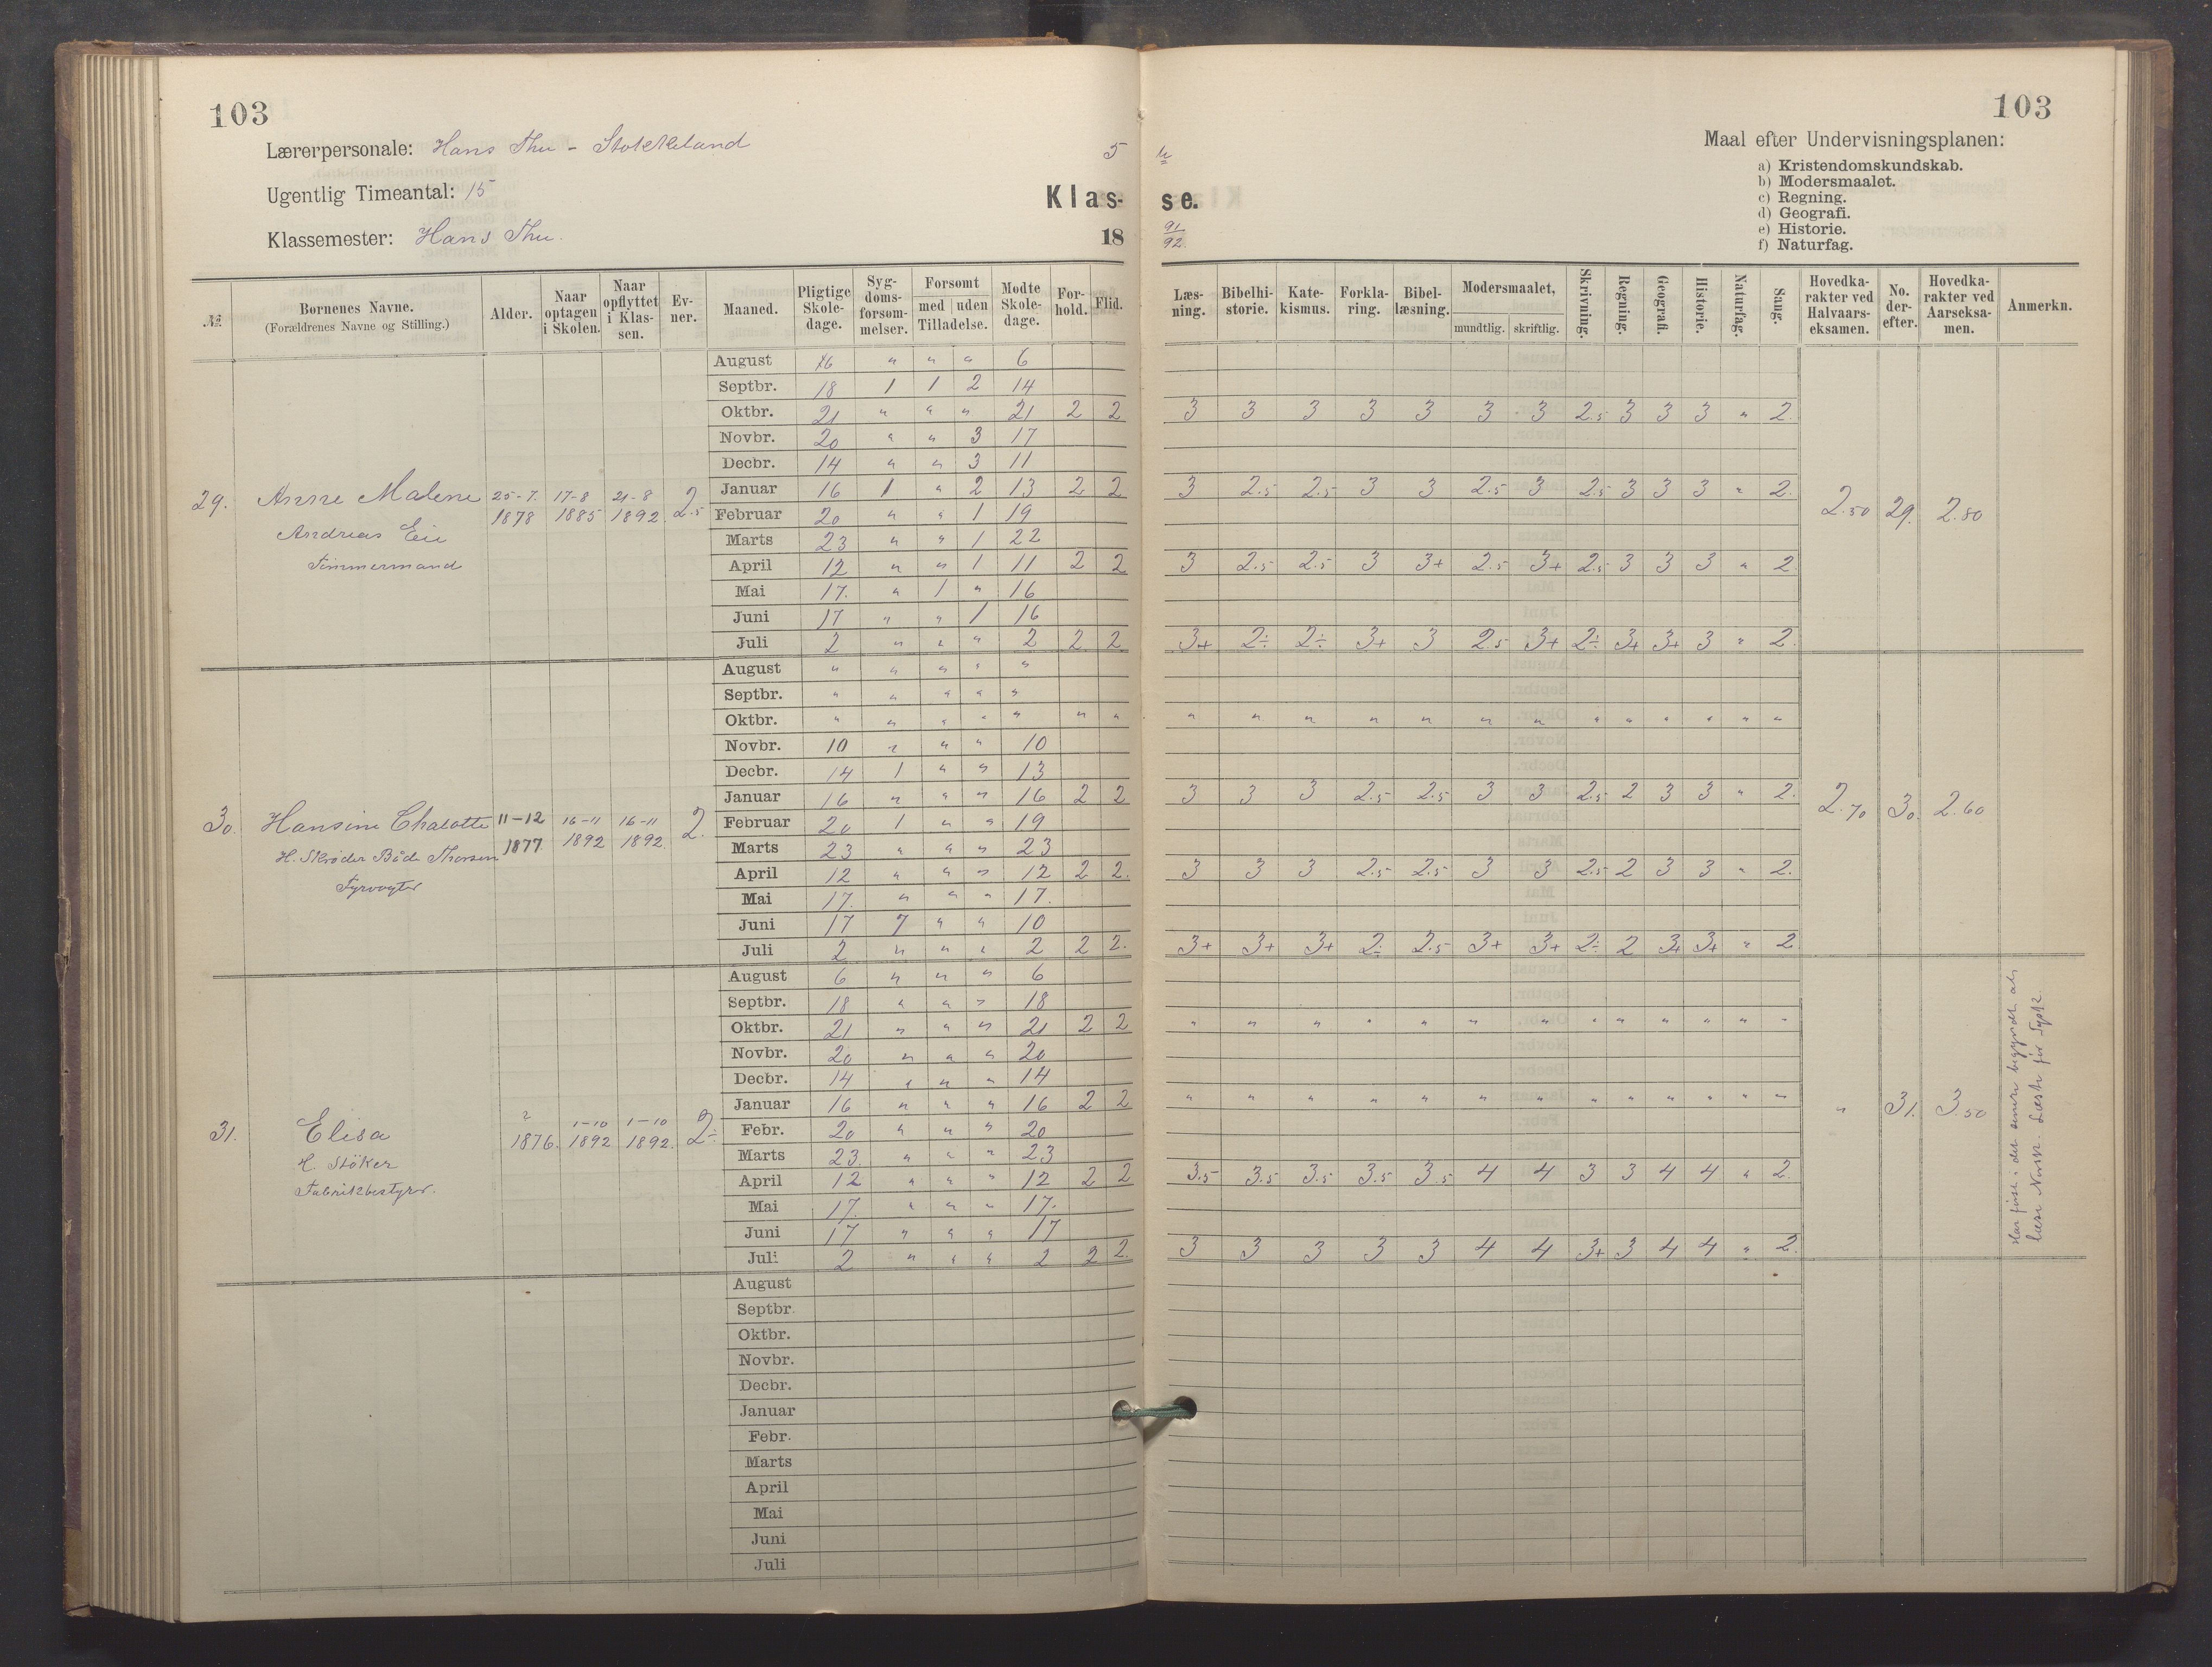 103
103
Lærerpersonale: Hans Thu - Stokkeland
5 te
Maal efter Undervisningsplanen:
a) Kristendomskundskab.
b) Modersmaalet.
c) Regning.
d) Geografi.
e) Historie.
f) Naturfag.
Ugentlig Timeantal: 15
Klas- se.
Klassemester: Hans Thu.
18 91/92.
№ | Børnenes Navne. (Forældrenes Navne og Stilling.) | Alder. | Naar optagen i Skolen. | Naar opflyttet i Klassen. | Evner. | Maaned. | Pligtige Skoledage. | Sygdomsforsømmelser. | Forsømt med uden Tilladelse. | Mødte Skoledage. | Forhold. | Flid. | Læsning. | Bibelhistorie. | Katekismus. | Forklaring. | Bibellæsning. | Modersmaalet, mundtlig. skriftlig. | Skrivning. | Regning. | Geografi. | Historie. | Naturfag. | Sang. | Hovedkarakter ved Halvaarseksamen. | No. derefter. | Hovedkarakter ved Aarseksamen. | Anmerkn.
29. Anne Malene 25-7. 1878 17-8 1885 21-8 1892 2.5
Andreas Eie
Tømmermand
August 6 " " " 6
Septbr. 18 1 1 2 14
Oktbr. 21 " " " 21 2 2 3 3 3 3 3 3 3 2.5 3 3 3 " 2.
Novbr. 20 " " 3 17
Decbr. 14 " " 3 11
Januar 16 1 " 2 13 2 2 3 2.5 2.5 3 3 2.5 3 2.5 3 3 3 " 2.
Februar 20 " " 1 19
2.50 29. 2.80
Marts 23 " " 1 22
April 12 " " 1 11 2 2 3 2.5 2.5 3 3+ 2.5 3+ 2.5 3 3 3 " 2.
Mai 17. " 1 " 16
Juni 17 " " 1 16
Juli 2 " " " 2 2 2 3+ 2÷ 2÷ 3+ 3 2.5 3+ 2÷ 3+ 3+ 3 " 2.
30. Hansine Chalotte 11-12 1877 16-11 1892 16-11 1892. 2.
H. Skrøder Bøde Thorsen
Fyrvogter
August " " " " "
Septbr. " " " " "
Oktbr. " " " " " " " " " " " " " " " " " " " "
Novbr. 10 " " " 10
Decbr. 14 1 " " 13
Januar 16 " " " 16 2 2 3 3 3 2.5 2.5 3 3 2.5 2 3 3 " 2.
2.70 30. 2.60
Februar 20 1 " " 19
Marts 23 " " " 23
April 12 " " " 12 2 2. 3 3 3 2.5 2.5 3 3 2.5 2 3 3 " 2.
Mai 17. " " " 17.
Juni 17 7 " " 10
Juli 2 " " " 2 2 2. 3+ 3+ 3+ 2÷ 2.5 3+ 3+ 2÷ 2 3+ 3+ " 2
31. Elisa 1876. 1-10 1892 1-10 1892. 2÷
H. Stöker
Fabrikbestyrer.
August 6 " " " 6
Septbr. 18 " " " 18
Oktbr. 21 " " " 21 2 2 " " " " " " " " " " " " "
Novbr. 20 " " " 20
Decbr. 14 " " " 14
Januar 16 " " " 16 2 2 " " " " " " " " " " " " "
" 31. 3.50
Febr. 20 " " " 20
Marts 23. " " " 23
April 12 " " " 12 2 2 3.5 3.5 3.5 3.5 3.5 4 4 3 3 4 4 " 2.
Mai 17. " " " 17.
Juni 17 " " " 17
Juli 2 " " " 2 2 2. 3 3 3 3 3 4 4 3+ 3 4 4 " 2.
Har først i det semer begyndt at
læse Norsk. Læste før Tysk.
August
Septbr.
Oktbr.
Novbr.
Decbr.
Januar
Febr.
Marts
April
Mai
Juni
Juli